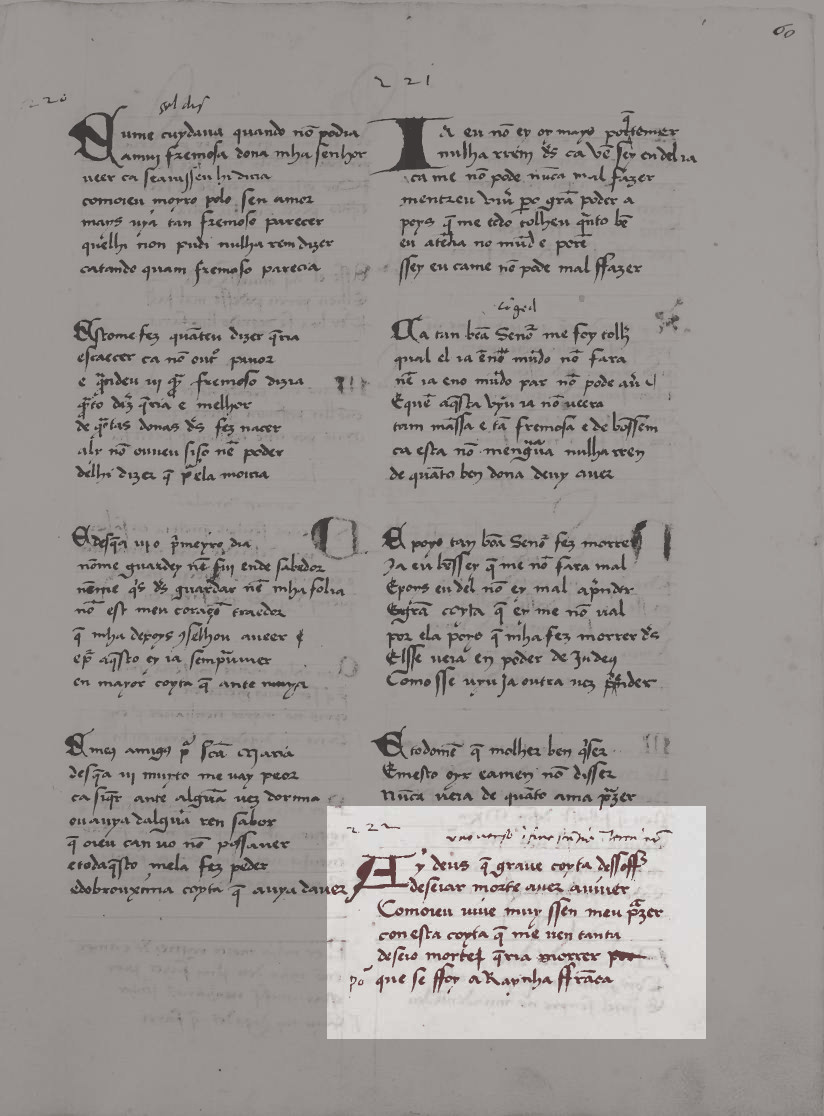 60
220
Nume cuydaua quando nõ podia
a mui fremosa dona mha senhor
ueer ca se a uisseu lhi diria
comoieu moyro polo sen amor
mays uya tan fremoso parecer
quelhi non pudi nulha rem dizer
catando quam fremoso parecia
Esto me fez quãteu dizer q̃ria
escaecer ca nõ outº pauor
e fremoso dizia
q̃ria e melhor
de donas ds fez nacer
aly nõ ouueu siso nẽ poder
delhi dizer q̃ p̃ ela moiria
E desq̃a ui o p̃meyro dia
nõme guardey nẽ fui ende sabedor
nẽme q̃s ds guardar nẽ mha folia
nõ est meu coraçõ traedor
q̃ mha depoys 9selhou a ueer
ep̃ aq̃sto ey ia semp̃uiuer
en mayor coyta q̃ ante
E meus amigus p̃ scã Maria
desq̃a ui muyto me uay peor
ca siq̃r ante algũa uez dormia
ou auya dalgũa ren sabor
q̃ oieu can uo nõ possauer
etodaq̃sto mela fez perder
coyta q̃ auya dauer
221
Ia eu nõ ey oy mayo por temer
nulha rrem ds ca bẽ sey en del ia
ca me nõ pode nũca mal fazer
mentreu p̃o grã poder a
poys q̃ me todo tolheu q̃nto bẽ
eu atẽdia no mũd e porẽ
ssey eu came nõ pode mal ffazer
Ca tan bõa Senor me foy tolh̃
qual el ia ẽno mũdo nõ fara
nẽ ia eno mũdo par nõ pode auer
E quẽ aq̃sta uyu ia nõ ueera
tam mãssa e tã fremosa e de bõssem
ca esta nõ mengũa nulha rren
de quãto ben dona deuy auer
E poys tan bõa Senor fez morrer
Ja eu bẽ ssey q̃ me nõ fara mal
E poys eu del nõ ey mal a p̃nder
E grã coyta q̃ ey me nõ ual
por ela poys q̃ mha fez morrer ds
El sse ueia en poder de Judeus
Como sse uyu Ja outra uez p̃nder
E todomẽ q̃ molher ben q̃ser
E mesto oyr e amen nõ disser
Nũca ueia de quãto ama p̃zer
222
Ay deus q̃ graue coyta dessoffr̃
deseiar morte auer a uiuer
Comoieu uiue muy ssen meu p̃zer
con esta coyta q̃ me ven tanta
deseio morte q̃ria morrer
por que se ffoy a Raynha ffrãca